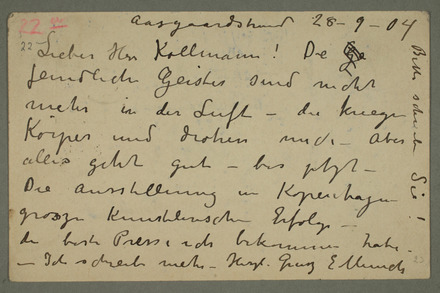 22
Aasgaardstrand 28-9-04
22 Lieber Herr Kollmann! Die
feindlichen Geister sind nicht
mehr in der Luft – die kriegen
Körper und drohen mich – Aber
alles geht gut – bis jetzt –
Die Ausstellung in Kopenhagen
grosze Kunstlerischer Erfolg –
die beste Presse ich bekommen habe –
– Ich schreibe mehr – Herzl. Grusz E Munch
Bitte schreiben Sie!